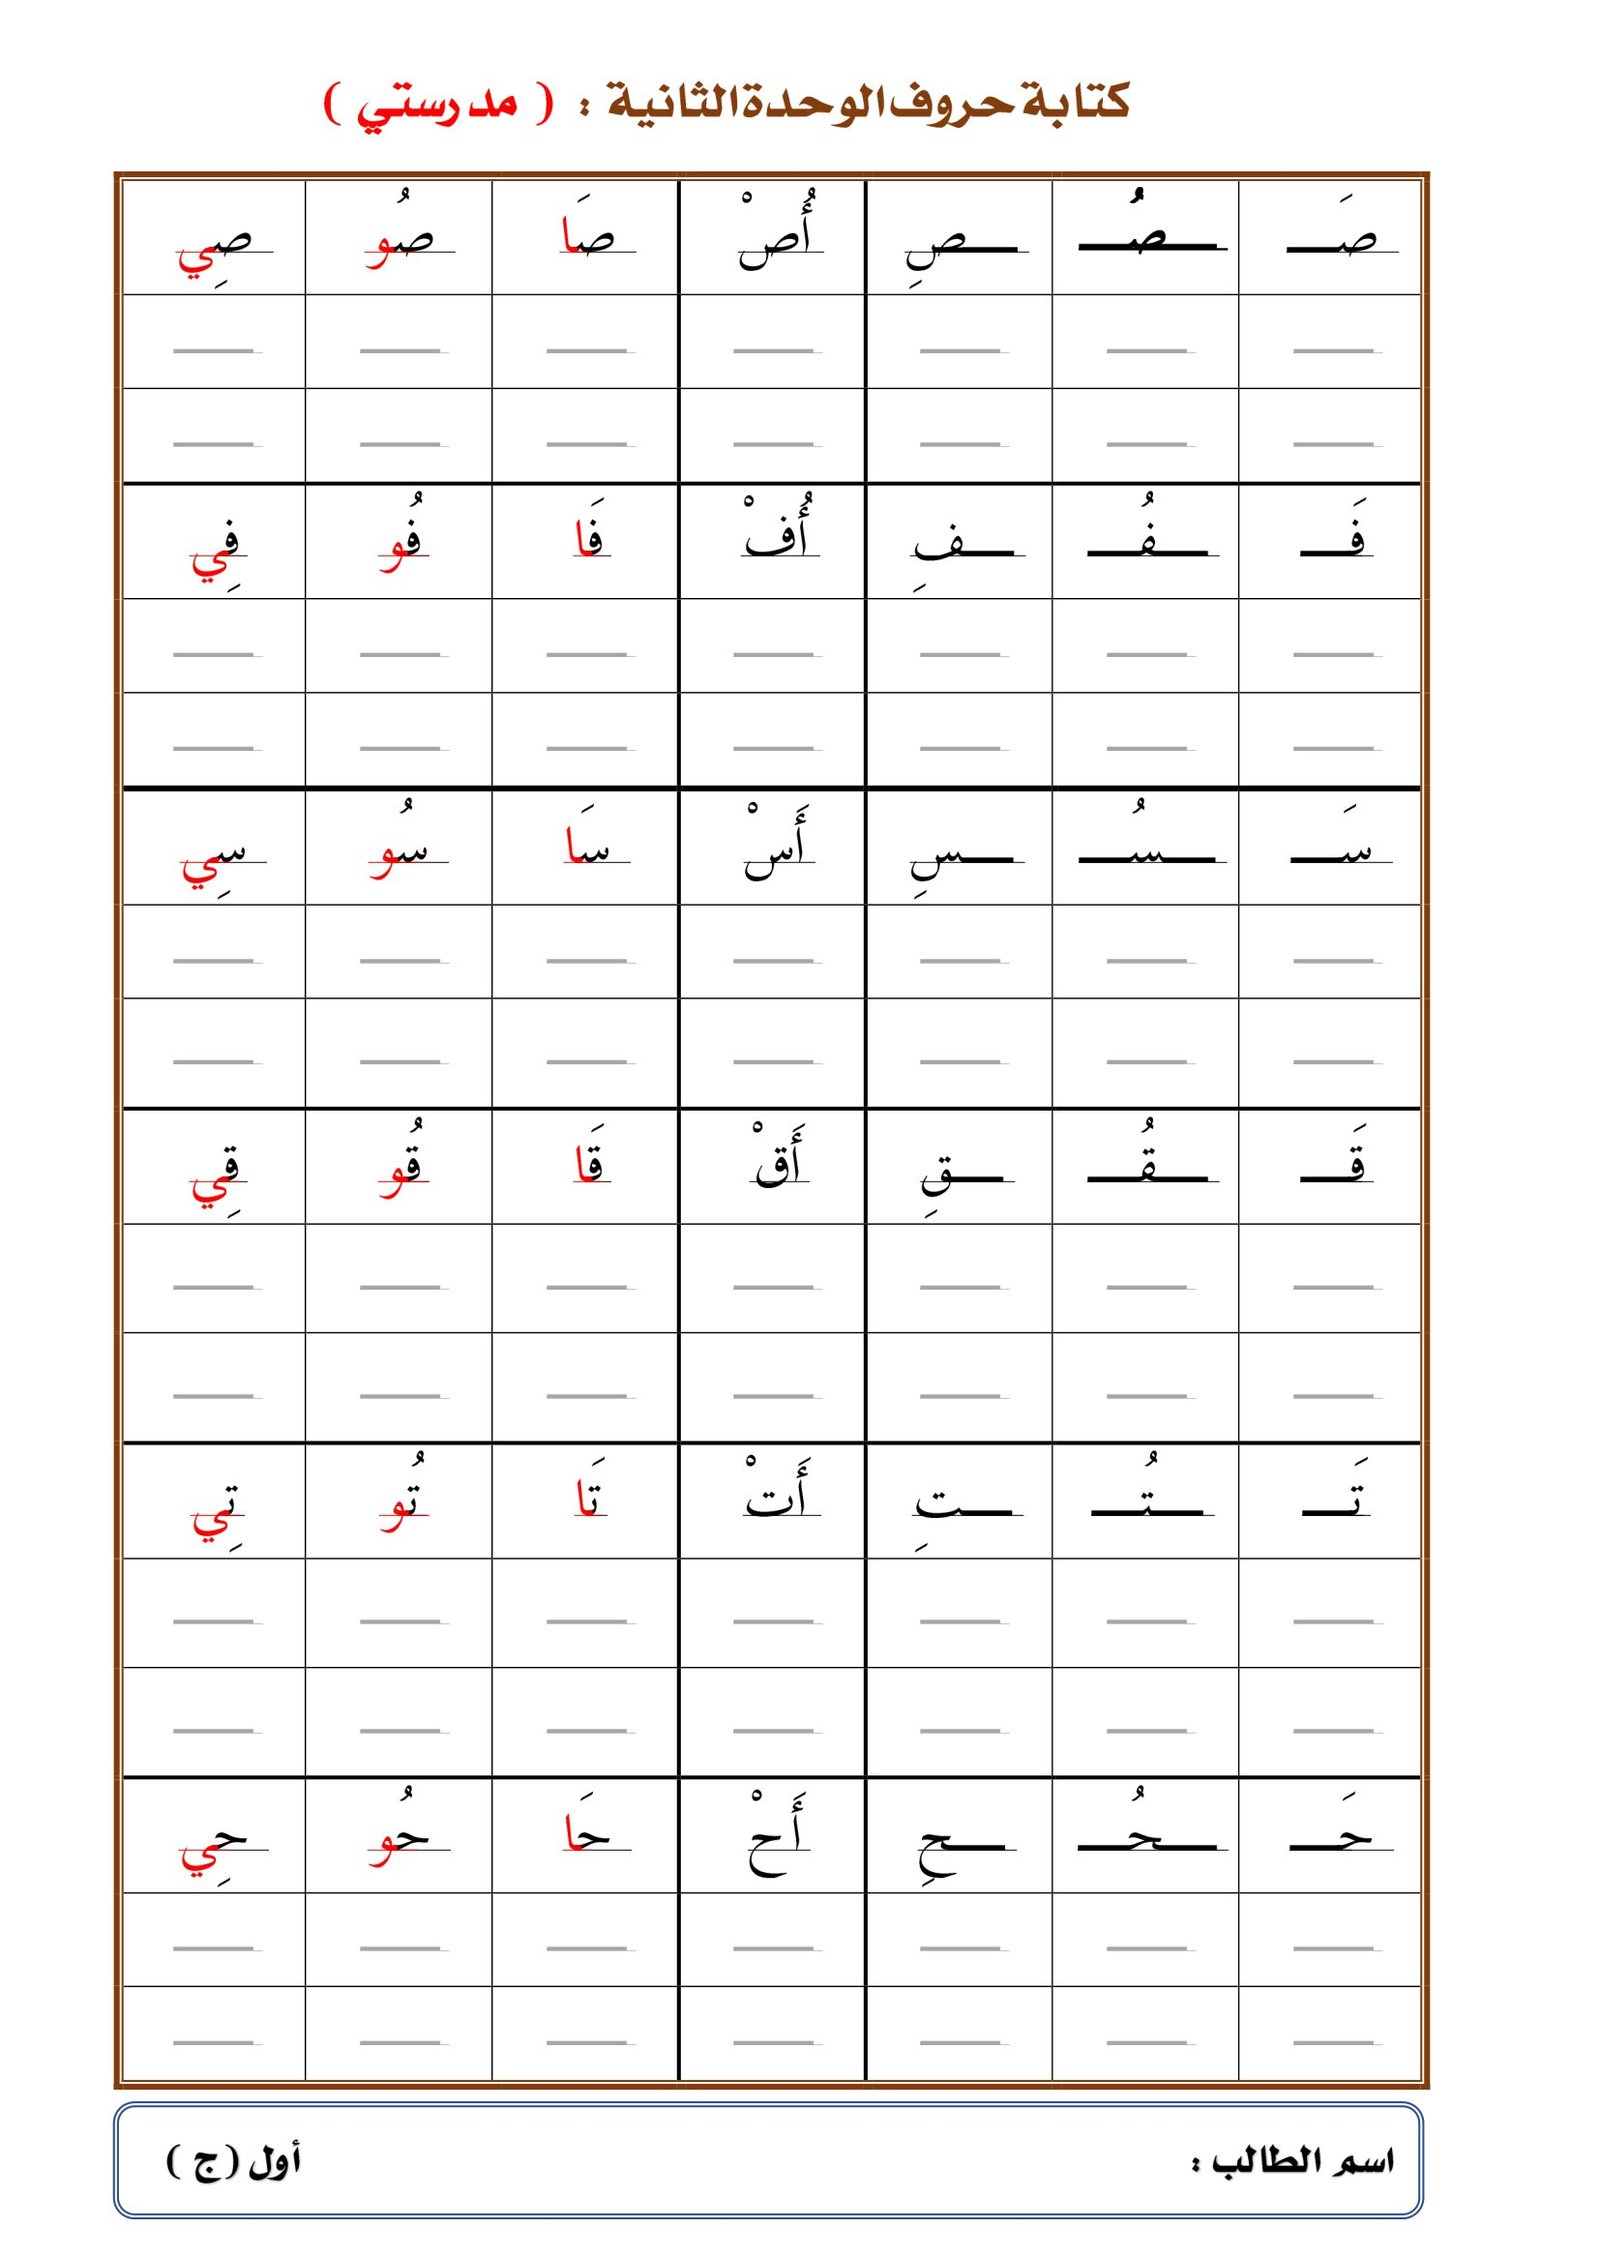 كتابة حروف الوحدة الثانية : ( مدرستي )
صَـ ـصُـ ـصِ أُصْ صَا صُو صِي
فَـ ـفُـ ـفِ أُفْ فَا فُو فِي
سَـ ـسُـ ـسِ أَسْ سَا سُو سِي
قَـ ـقُـ ـقِ أَقْ قَا قُو قِي
تَـ ـتُـ ـتِ أَتْ تَا تُو تِي
حَـ ـحُـ ـحِ أَحْ حَا حُو حِي
اسم الطالب : أول ( ج )